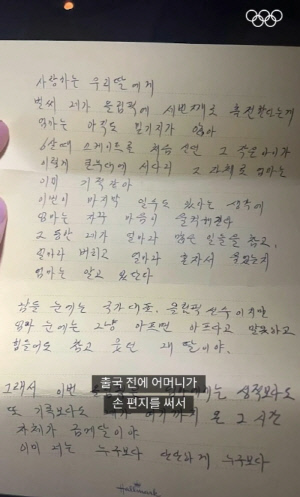 사랑하는 우리딸에게
벌써 네가 올림픽에 세번째로 출전한다는게
엄마는 아직도 믿기지가 않아
6살때 스케이트를 처음 신던 그 작은 아이가
이렇게 큰무대에 서다니 그 자체로 엄마는
이미 기적같아
이번이 마지막 일수도 있다는 생각에
엄마는 자꾸 마음이 울컥해진다
그동안 네가 얼마나 많은 일들을 참고,
얼마나 버티고 얼마나 혼자서 울었는지
엄마는 알고 있단다
남들 눈에는 국가대표, 올림픽 선수 이지만
엄마 눈에는 그냥 아프면 아프다고 말못하고
힘들어도 참고 웃던 내 딸이야.
그래서 이번 성적보다도
또 기록보다도 네가 여기까지 온 그 시간
자체가 금메달이야
이미 너는 누구보다 단단하게 누구보다
출국 전에 어머니가
손 편지를 써서
Hallmark